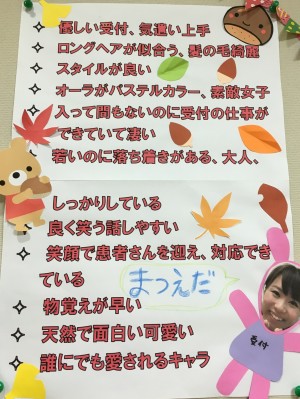 ✧ 優しい受付、気遣い上手
✧ ロングヘアが似合う、髪の毛綺麗
✧ スタイルが良い
✧ オーラがパステルカラー、素敵女子
✧ 入って間もないのに受付の仕事が
できていて凄い
✧ 若いのに落ち着きがある、大人、
しっかりしている
✧ 良く笑う話しやすい
✧ 笑顔で患者さんを迎え、対応でき
ている
まつえだ
✧ 物覚えが早い
✧ 天然で面白い可愛い
✧ 誰にでも愛されるキャラ
受付